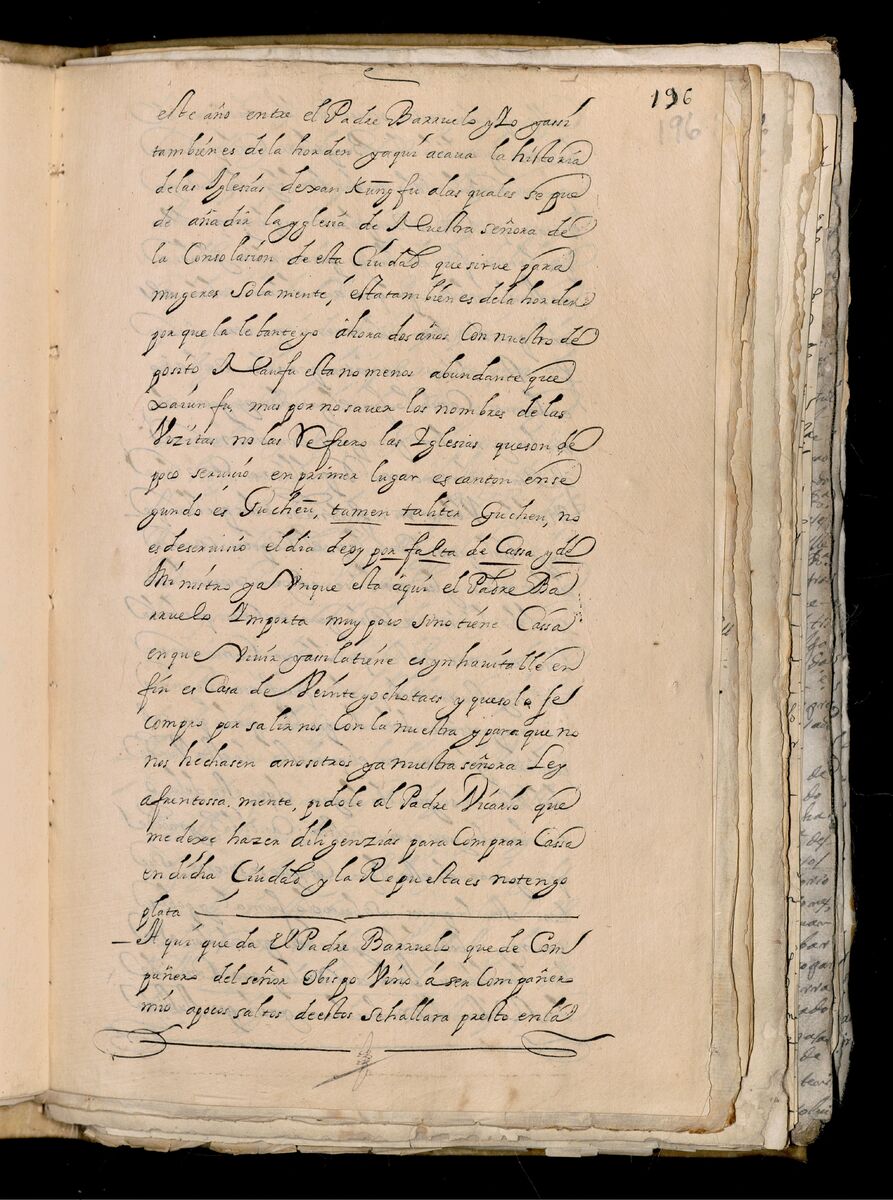 196
196
este año entre el Padre Barruelo y Yo yassi
tambien es dela horden yaqui acava la historia
delas Iglesias dexan Kung fu alas quales se que
de añadir la yglesia de Nuestra señora de
la Consolasion de esta Ciudad que sirve ppra
mugeres solamente, estatambien es dela horden
por que la lebante yo ahora dos años con nuestro de
posito Naufu esta no menos abundante que
xaiun fu, mas por no saver los nombres de las
Vizitas no las Refiero las Iglesias queson de
poco servicio en primer lugar es canton ense
gundo es Gucheu, tamen taliter Gucheu, no
es deservisio el dia deoy por falta de Cassa y de
Ministro ya Unque esta aqui el Padre Ba
rruelo Ymporta muy poco sino tiene Cassa
enque Vivir yassilatiene es ynhavitable en
fin es Casa de Veinte yochotaes y quesolo se
compro por salirnos con la nuestra y para que no
nos hechasen anosotros ya nuestra señora Ley
afrentossa. mente, pidole al Padre Vicario que
me dexe hazer diligenzias para Comprar Cassa
en dicha Ciudad y la Repuesta es no tengo
plata
Aqui que da El Padre Barruelo que de Com
pañero del señor Obispo Vino á ser Compañero
mio apocos saltos deestos sehallara presto en la